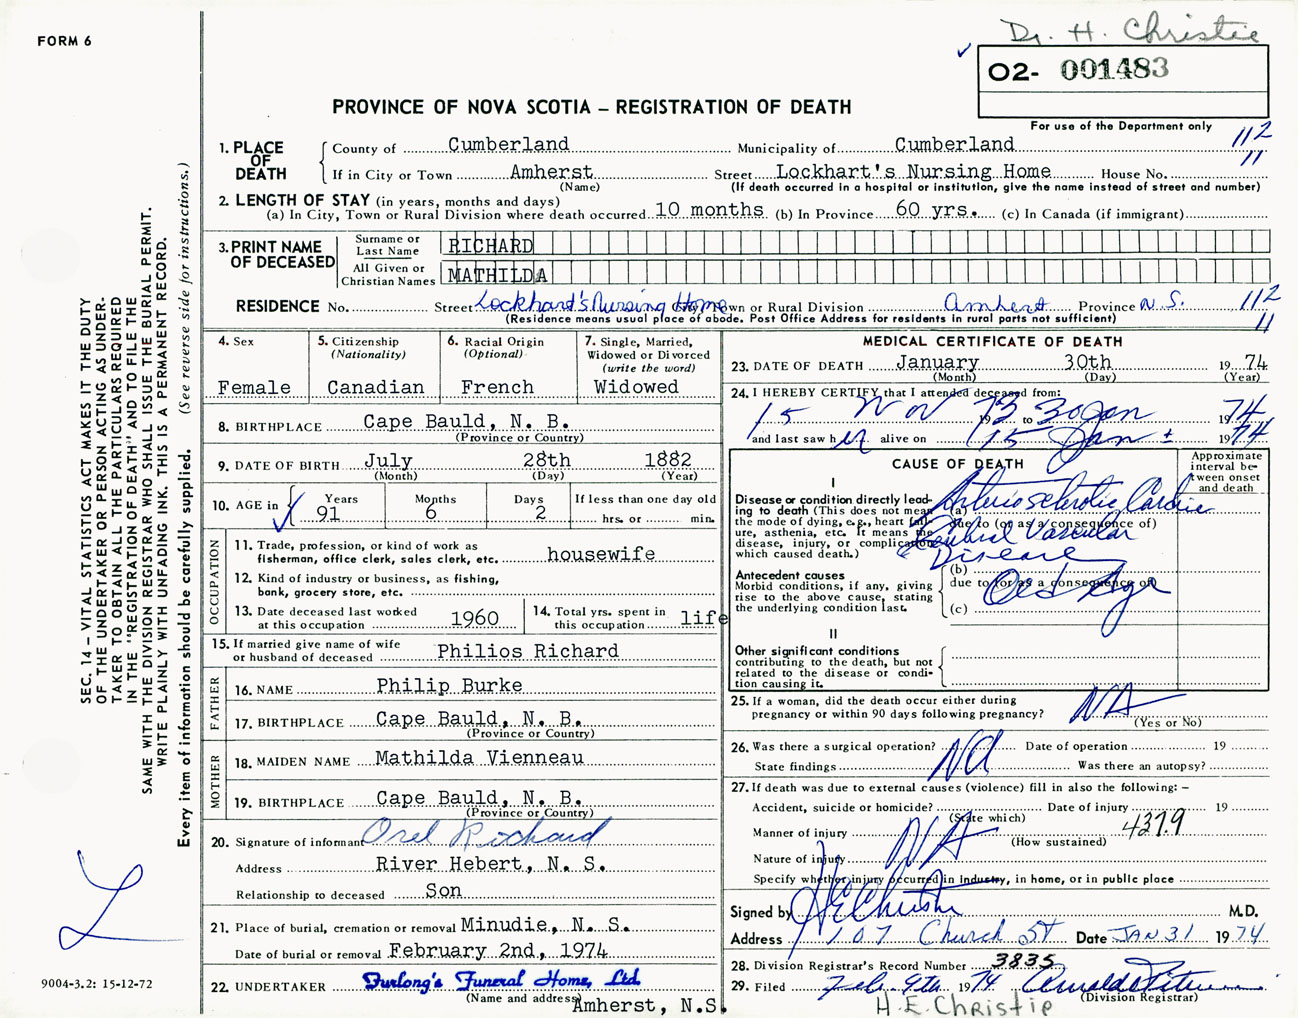 Dr. H. Christie
FORM 6
02- 001483
PROVINCE OF NOVA SCOTIA – REGISTRATION OF DEATH
For use of the Department only
1. PLACE OF DEATH
County of Cumberland Municipality of Cumberland 112
If in City or Town Amherst Street Lockhart's Nursing Home House No. 11
(Name) (If death occurred in a hospital or institution, give the name instead of street and number)
2. LENGTH OF STAY (in years, months and days)
(a) In City, Town or Rural Division where death occurred 10 months (b) In Province 60 yrs. (c) In Canada (if immigrant)
3. PRINT NAME OF DECEASED
Surname or Last Name RICHARD
All Given or Christian Names MATHILDA
RESIDENCE No. Street Lockhart's Nursing Home City, Town or Rural Division Amherst Province N.S. 112
(Residence means usual place of abode. Post Office Address for residents in rural parts not sufficient) 11
4. Sex
Female
5. Citizenship
(Nationality)
Canadian
6. Racial Origin
(Optional)
French
7. Single, Married,
Widowed or Divorced
(write the word)
Widowed
8. BIRTHPLACE Cape Bauld, N. B.
(Province or Country)
9. DATE OF BIRTH July 28th 1882
(Month) (Day) (Year)
10. AGE in
Years Months Days If less than one day old
91 6 2 hrs. or min.
OCCUPATION
11. Trade, profession, or kind of work as
fisherman, office clerk, sales clerk, etc. housewife
12. Kind of industry or business, as fishing,
bank, grocery store, etc.
13. Date deceased last worked
at this occupation 1960
14. Total yrs. spent in
this occupation life
15. If married give name of wife
or husband of deceased Philios Richard
FATHER
16. NAME Philip Burke
17. BIRTHPLACE Cape Bauld, N. B.
(Province or Country)
MOTHER
18. MAIDEN NAME Mathilda Vienneau
19. BIRTHPLACE Cape Bauld, N. B.
(Province or Country)
20. Signature of informant Orel Richard
Address River Hebert, N. S.
Relationship to deceased Son
21. Place of burial, cremation or removal Minudie, N. S.
Date of burial or removal February 2nd, 1974
22. UNDERTAKER Furlong's Funeral Home, Ltd.
(Name and address) Amherst, N.S.
MEDICAL CERTIFICATE OF DEATH
23. DATE OF DEATH January 30th 19 74
(Month) (Day) (Year)
24. I HEREBY CERTIFY that I attended deceased from:
15 Nov 1973 to 30 Jan 1974
and last saw her alive on 15 Jan ± 1974
CAUSE OF DEATH
Approximate
interval be-
tween onset
and death
I
Disease or condition directly lead-
ing to death (This does not mean
the mode of dying, e.g., heart fail-
ure, asthenia, etc. It means the
disease, injury, or complication
which caused death.)
(a) Arteriosclerotic Cardio
due to (or as a consequence of)
Cerebral Vascular
Disease
Antecedent causes
Morbid conditions, if any, giving
rise to the above cause, stating
the underlying condition last.
(b)
due to (or as a consequence of)
Old Age
(c)
II
Other significant conditions
contributing to the death, but not
related to the disease or condi-
tion causing it.
25. If a woman, did the death occur either during
pregnancy or within 90 days following pregnancy? NA
(Yes or No)
26. Was there a surgical operation? NA Date of operation 19
State findings Was there an autopsy?
27. If death was due to external causes (violence) fill in also the following: –
Accident, suicide or homicide? Date of injury 19
(State which)
Manner of injury NA 437.9
(How sustained)
Nature of injury
Specify whether injury occurred in Industry, in home, or in public place
Signed by H E Christie M.D.
Address 107 Church St Date JAN 31 1974
28. Division Registrar's Record Number 3835
29. Filed Feb. 9th 1974
(Division Registrar)
H.E. Christie
SEC. 14 – VITAL STATISTICS ACT MAKES IT THE DUTY
OF THE UNDERTAKER OR PERSON ACTING AS UNDER-
TAKER TO OBTAIN ALL THE PARTICULARS REQUIRED
IN THE "REGISTRATION OF DEATH" AND TO FILE THE
SAME WITH THE DIVISION REGISTRAR WHO SHALL ISSUE THE BURIAL PERMIT.
WRITE PLAINLY WITH UNFADING INK. THIS IS A PERMANENT RECORD.
Every item of information should be carefully supplied. (See reverse side for instructions.)
L
9004-3.2: 15-12-72